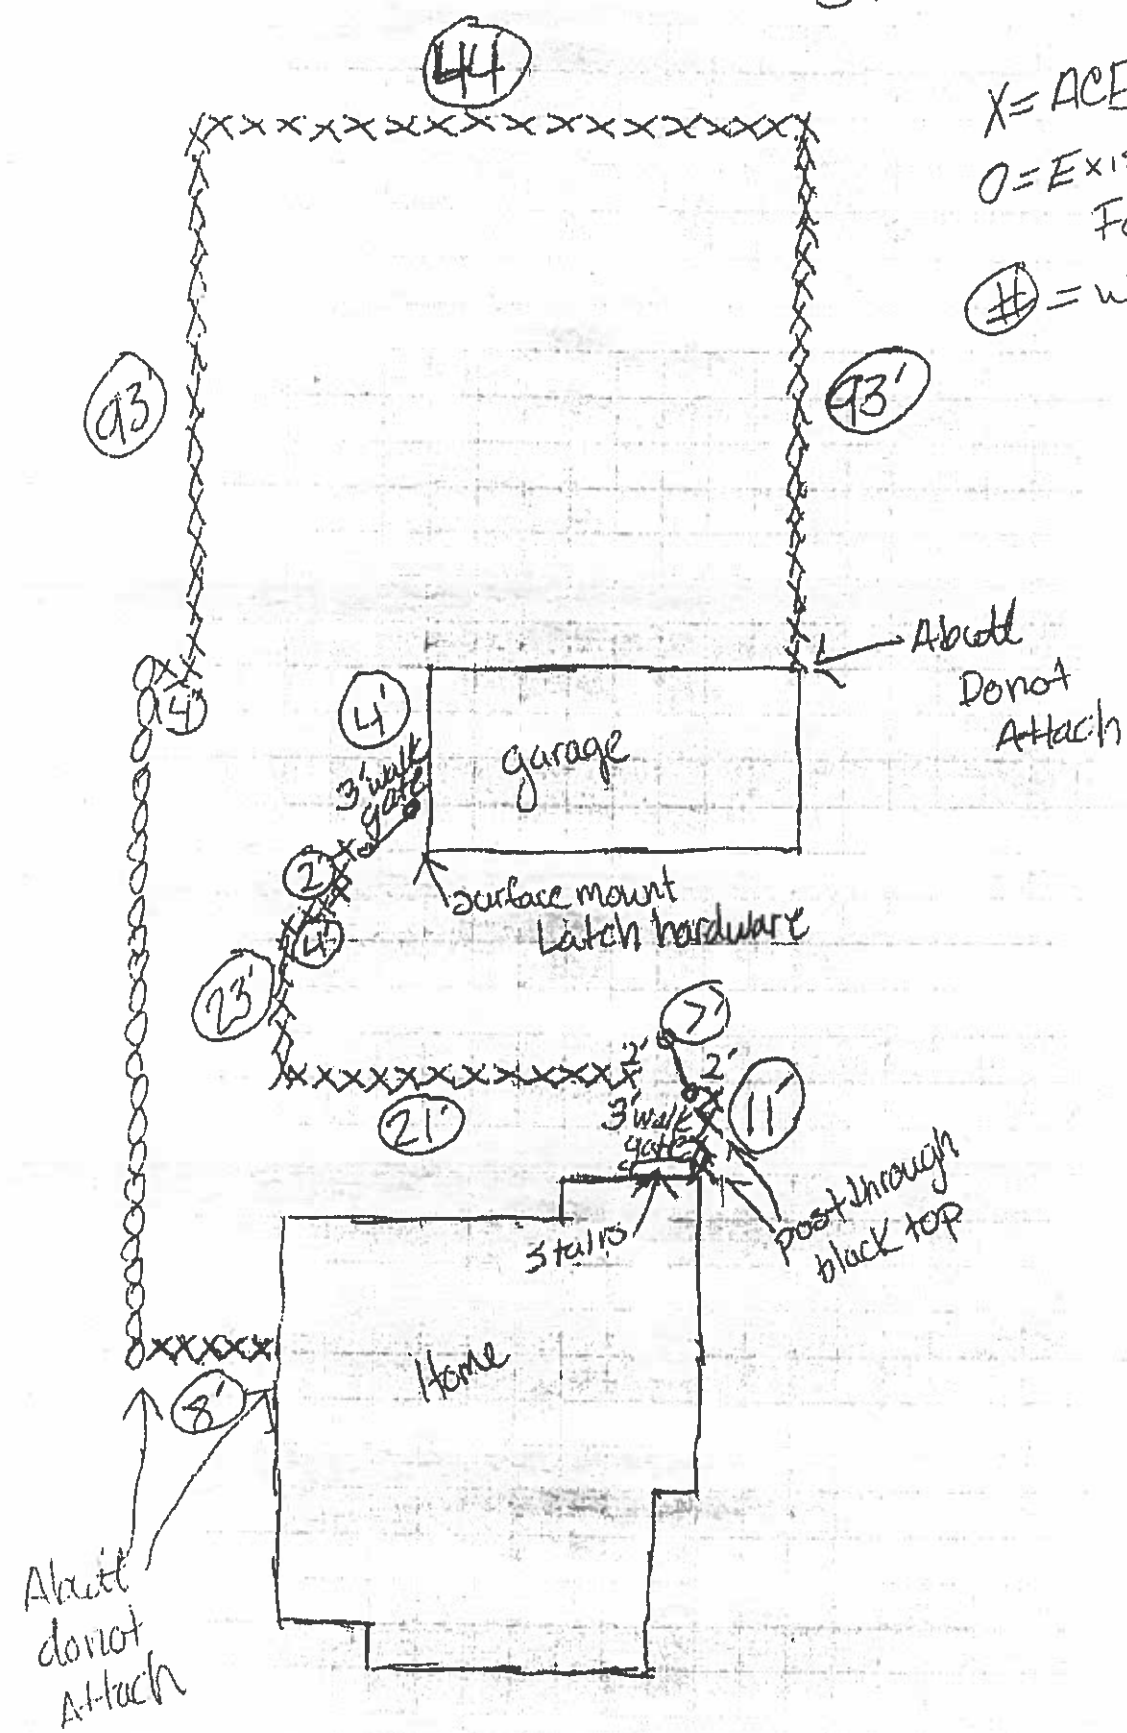 44'
X = ACE
O = Exis
Fo
# = w
93'
93'
Abutt
Donot
Attach
4'
4'
garage
3' walk
gate
2'
surface mount
Latch hardware
4'
23'
7'
2'
2'
3' walk
gate
11'
21'
Stairs
post through
black top
Home
8'
Abutt
donot
Attach